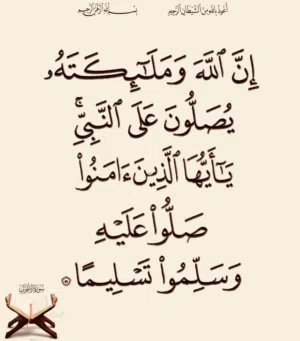 أعوذ بالله من الشيطان الرجيم
بسم الله الرحمن الرحيم
إِنَّ ٱللَّهَ وَمَلَـٰٓئِكَتَهُۥ
يُصَلُّونَ عَلَى ٱلنَّبِىِّۚ
يَـٰٓأَيُّهَا ٱلَّذِينَ ءَامَنُوا۟
صَلُّوا۟ عَلَيْهِ
وَسَلِّمُوا۟ تَسْلِيمًا